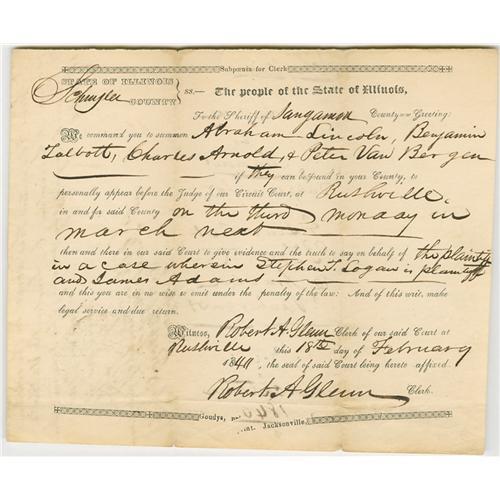 Subpœna for Clerk
STATE OF ILLINOIS
Schuyler COUNTY
ss.— The people of the State of Illinois,
To the Sheriff of Sangamon County—Greeting:
We command you to summon Abraham Lincoln, Benjamin
Talbott, Charles Arnold, & Peter Van Bergen
if they can be found in your County, to
personally appear before the Judge of our Circuit Court, at Rushville,
in and for said County on the third monday in
march next
then and there in our said Court to give evidence and the truth to say on behalf of the plaintiff
in a case wherein Stephen T. Logan is plaintiff
and James Adams
and this you are in no wise to omit under the penalty of the law: And of this writ, make
legal service and due return.
Witness, Robert A Glenn Clerk of our said Court at
Rushville this 18th day of February
1840, the seal of said Court being hereto affixed.
Robert A Glenn Clerk.
Goudys, Jacksonville.